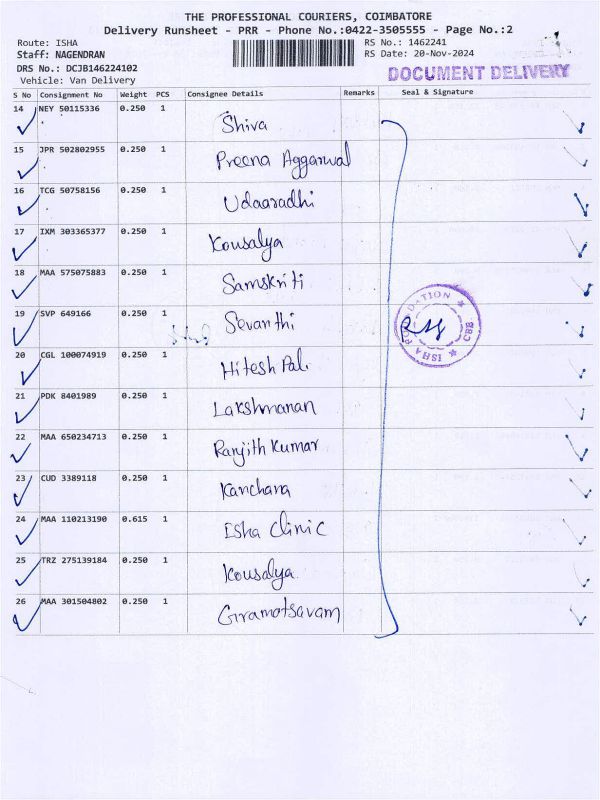 THE PROFESSIONAL COURIERS, COIMBATORE
Delivery Runsheet - PRR - Phone No.:0422-3505555 - Page No.:2
Route: ISHA RS No.: 1462241
Staff: NAGENDRAN RS Date: 20-Nov-2024
DRS No.: DCJB146224102 DOCUMENT DELIVERY
Vehicle: Van Delivery
S No Consignment No Weight PCS Consignee Details Remarks Seal & Signature
14 NEY 50115336 0.250 1 Shiva
15 JPR 502802955 0.250 1 Preena Aggarwal
16 TCG 50758156 0.250 1 Udaaradhi
17 IXM 303365377 0.250 1 Kousalya
18 MAA 575075883 0.250 1 Samskriti
19 SVP 649166 0.250 1 Sevanthi
ISHA FOUNDATION CBE
20 CGL 100074919 0.250 1 Hitesh Pal
21 PDK 8401989 0.250 1 Lakshmanan
22 MAA 650234713 0.250 1 Ranjith Kumar
23 CUD 3389118 0.250 1 Kanchana
24 MAA 110213190 0.615 1 Esha Clinic
25 TRZ 275139184 0.250 1 Kousalya
26 MAA 301504802 0.250 1 Gramotsavam